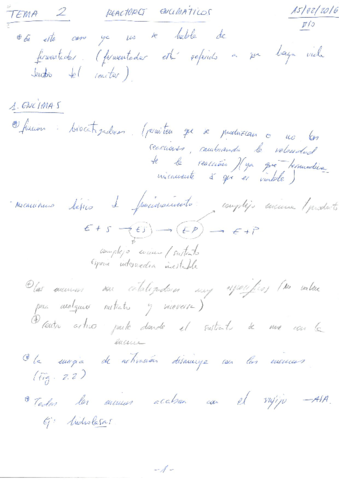 TEMA 2 REACTORES ENZIMÁTICOS 15/02/2016
* En este caso ya no se habla de
fermentador. (fermentador está referido a por haya vida
dentro del reactor).
1. ENZIMAS
función: biocatalizadores (permiten que se produzcan o no las
reacciones, cambiando la velocidad
de la reacción) (ya que termodinámicamente
a que es viable)
mecanismo básico de funcionamiento complejo enzima/producto
E + S → ES → E-P → E + P
complejo enzima/sustrato
especie intermedia inestable
Las enzimas son catalizadores muy específicos (no valen
para cualquier sustrato y reacción)
centro activo parte donde el sustrato se une con la
enzima
La energía de activación disminuye con las enzimas
(Fig. 2.2)
* Todas las enzimas acaban con el sufijo -ASA
Ej: hidrolasas
-1-